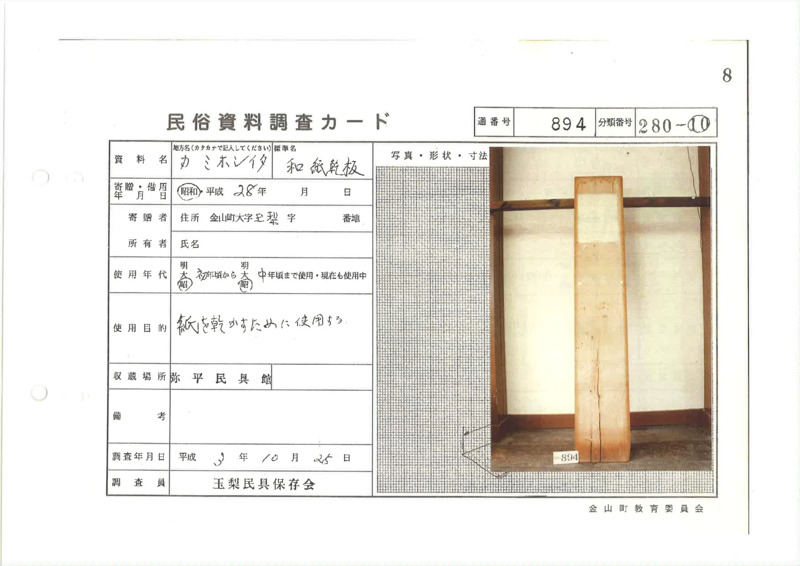 8
民俗資料調査カード
通番号 894 分類番号 280-10
資料名 地方名(カタカナで記入してください) カミホシイタ 標準名 和紙乾板
写真・形状・寸法
寄贈・借用年月日 昭和・平成 28年 月 日
寄贈者 住所 金山町大字玉梨字 番地
所有者 氏名
使用年代 明大昭 初年頃から 明大昭 中年頃まで使用・現在も使用中
使用目的 紙を乾かすために使用する
収蔵場所 弥平民具館
備考
調査年月日 平成 3年 10月 25日
調査員 玉梨民具保存会
894
金山町教育委員会